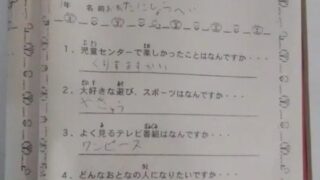 年 名前
1. 児童センターで楽しかったことはなんですか・・・
くりすますかい
2. 大好きな遊び、スポーツはなんですか・・・
やきゅう
3. よく見るテレビ番組はなんですか・・・
ワンピース
4. どんなおとなの人になりたいですか・・・